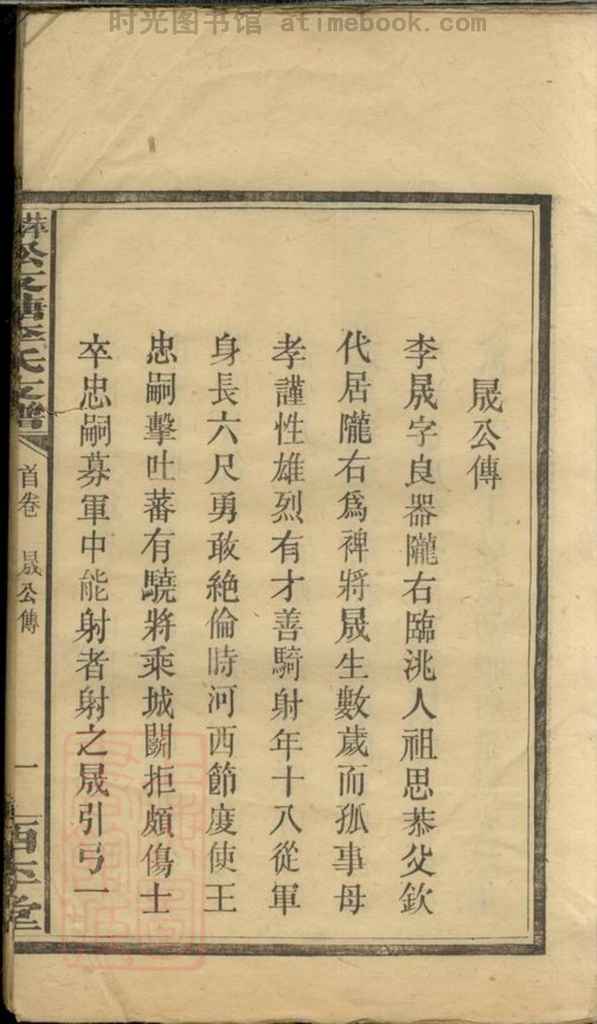 时光图书馆 atimebook.com
晟公傳
李晟字良器隴右臨洮人祖思恭父欽
代居隴右爲裨將晟生數歲而孤事母
孝謹性雄烈有才善騎射年十八從軍
身長六尺勇敢絶倫時河西節度使王
忠嗣擊吐蕃有驍將乘城鬭拒頗傷士
卒忠嗣募軍中能射者射之晟引弓一
李氏支譜
首卷 晟公傳
一